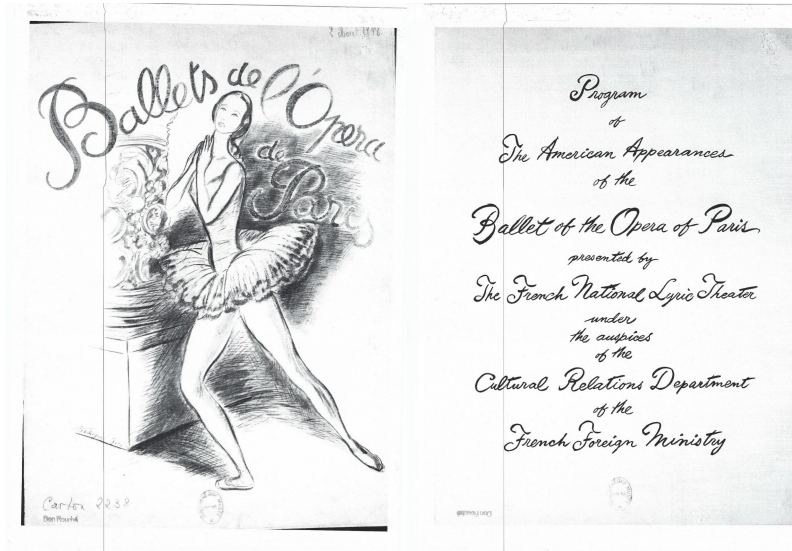 Ballets de l'Opera
de
Paris
Carton 2238
Program
of
The American Appearances
of the
Ballet of the Opera of Paris
presented by
The French National Lyric Theater
under
the auspices
of the
Cultural Relations Department
of the
French Foreign Ministry